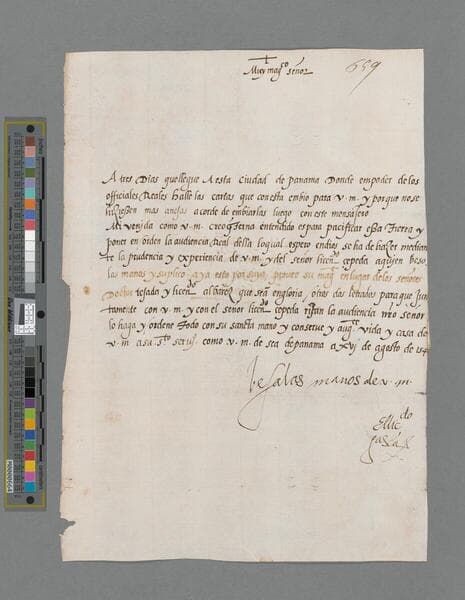 Muy mag.co señor
659
A tres Dias que llegue A esta ciudad de panama Donde en poder de los
officiales Reales halle las cartas que con esta embio para v. m. y porque no se
hiziessen mas anejas acorde de embiarlas luego con este mensajero
Mi venida como v. m. creo terna entendido es para pacificar essa tierra y
poner en orden la audiencia Real della lo qual espero en dios se ha de hazer mediante
te la prudencia y experiencia de v. m. y del señor licen.do cepeda a quien beso
las manos y suplico aya esta por suya provee su mag. en lugar de los señores
Doctor tejada y licen.do albarez que sea en gloria, otros dos letrados para que Jun
tamente con v. m. y con el señor licen.do cepeda la audiencia nro señor
lo haga y ordene todo con su sancta mano y conserve y aug.te vida y casa de
v. m. a su s.to serui.o como v. m. desea de panama a xvj de agosto de 154
besa las manos de v. m.
El lic.do
gasca